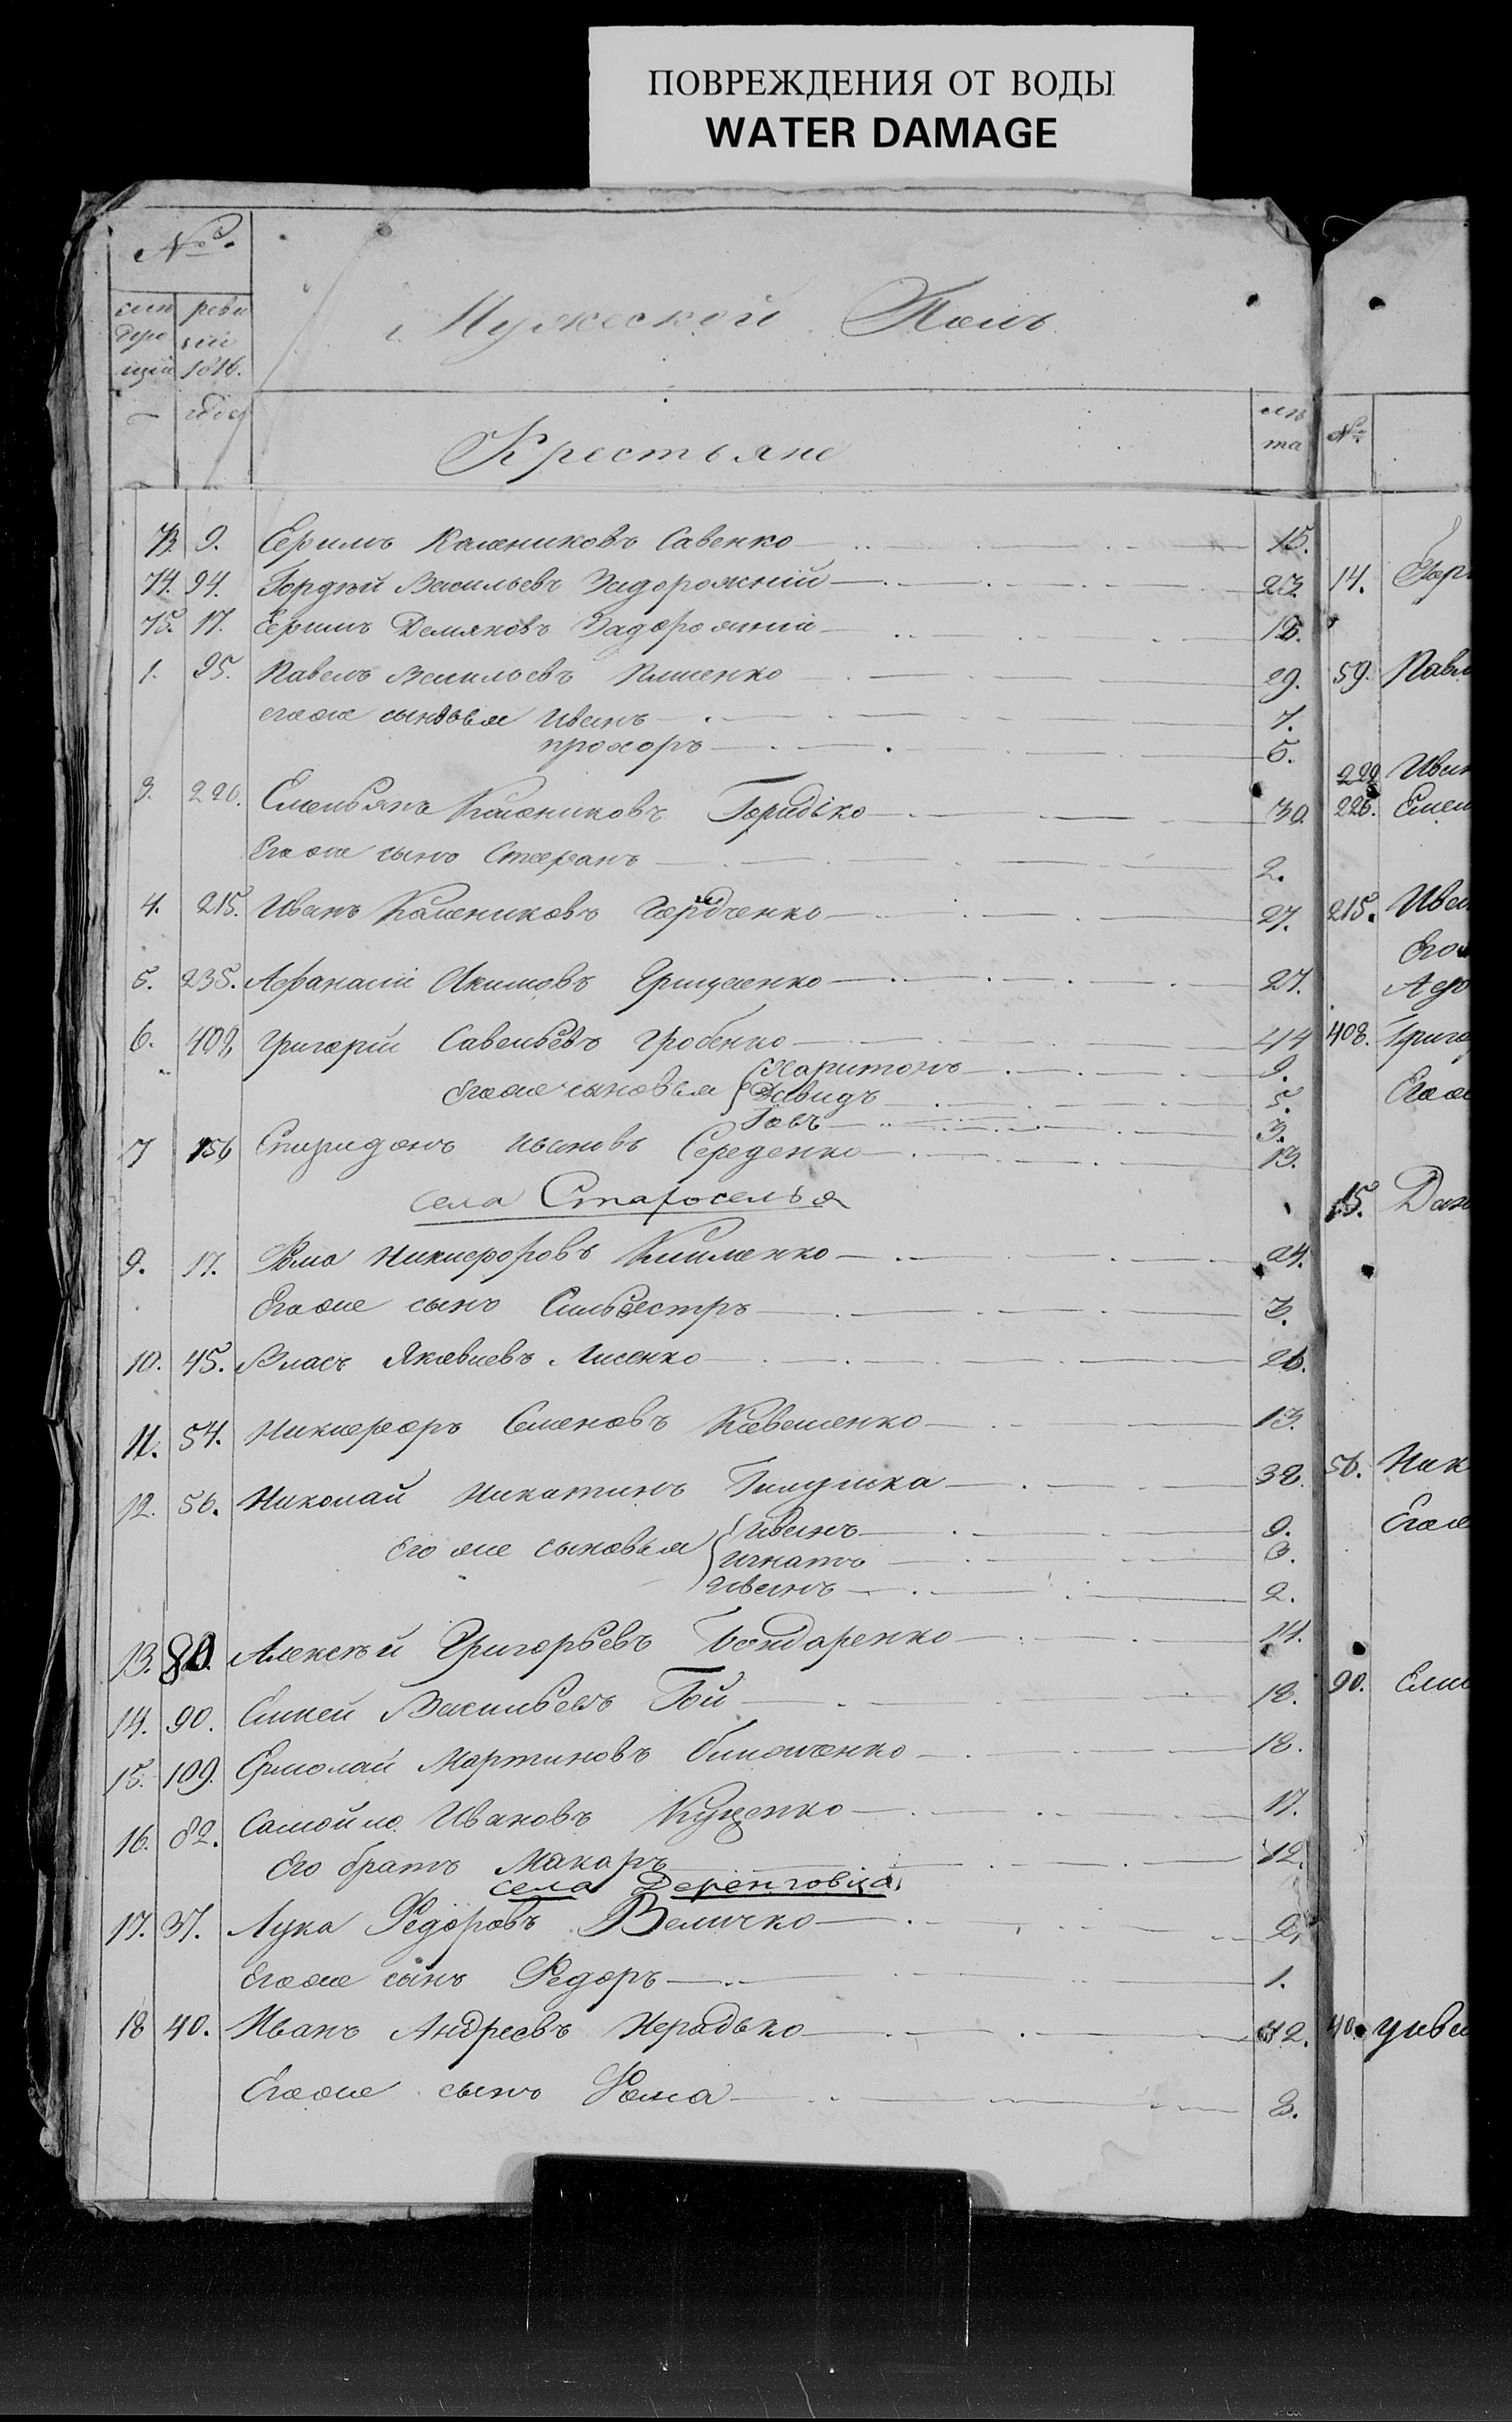 ПОВРЕЖДЕНИЯ ОТ ВОДЫ
WATER DAMAGE
№
реви
зіи
1816.
года
Мужеской Полъ
Крестьяне
лѣ
та
№
73. 9. Ефимъ Калениковъ Савенко 15.
74. 94. Гордѣй Васильевъ Задорожній 23. 14.
75. 17. Ефимъ Демяновъ Задорожній
1. 95. Павелъ Васильевъ 29. 59. Павл
его же сыновья Иванъ 7.
прохоръ 5.
229 Иван
3. 226. Емельянъ Калениковъ 30. 226. Емел
Его же сынъ Стефанъ 2.
4. 215. Иванъ Калениковъ 27. 215. Иван
5. 235. Афанасій Акимовъ Грищенко 27.
6. 408. Григорій Савельевъ Гробенко 44 408. Григо
Его же сыновья Харитонъ 9.
Давидъ 5.
Іовъ 3.
7 156 Спиридонъ Ивановъ Середенко 13.
села Староселья
15. Дан
9. 17. Фома Никифоровъ Клименко 24.
Его же сынъ Сильвестръ 3.
10. 45. Власъ Яковлевъ Лисенко 26.
11. 54. Никифоръ Семеновъ 13.
12. 56. Николай Никитинъ 38. 56. Ник
Его же сыновья Иванъ 9.
Игнатъ 3.
Иванъ 2.
13. 80. Алексѣй Григорьевъ Бондаренко 14.
14. 90. Елисей Васильевъ Гой 18. 90. Ели
15. 109. Ермолай Мартиновъ 18.
16. 82. Самойло Ивановъ Куценко 17.
Его братъ Макаръ 12.
села Деренговца
17. 37. Лука Федоровъ Величко
Его же сынъ Федоръ 1.
18 40. Иванъ Андреевъ Нерадько 42. 40.
Его же сынъ Фома 8.